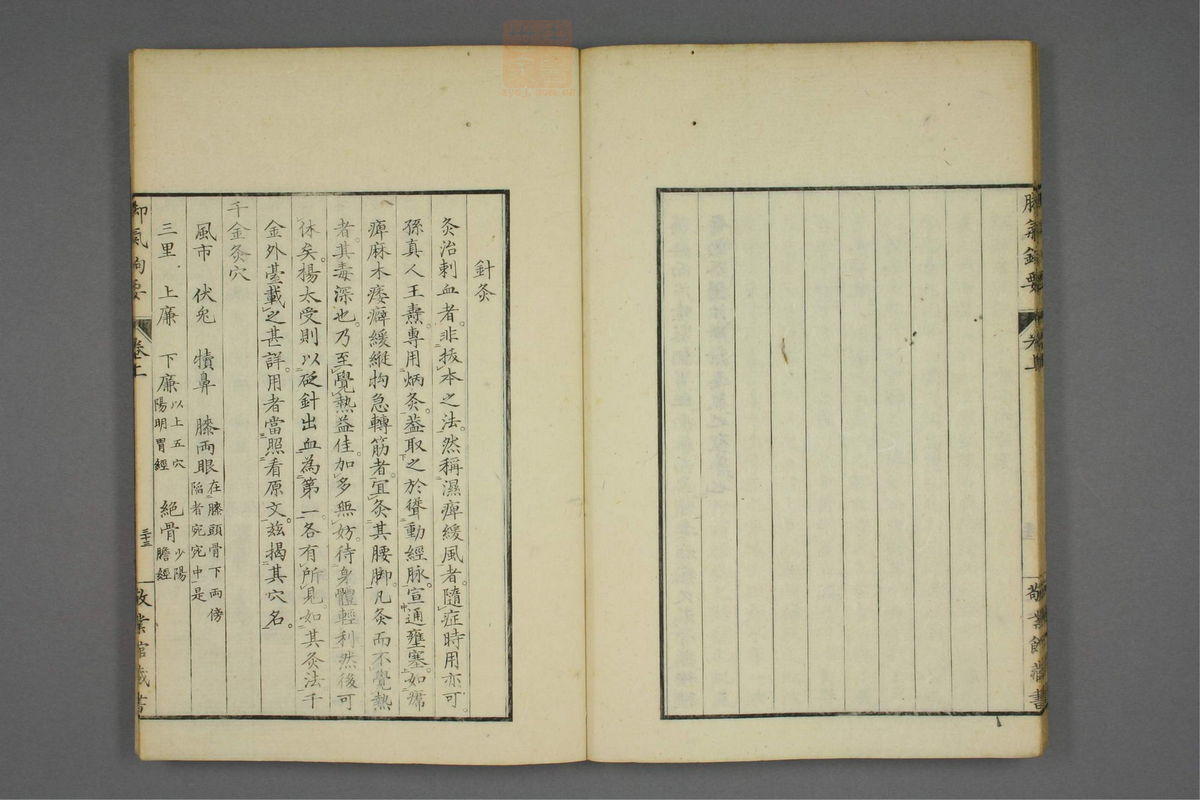 脚氣鈎要
卷上
敬業館藏書
針灸
灸治刺血者。非拔本之法。然稱濕痺緩風者。隨症時用亦可。
孫真人王燾專用炳灸。葢取之於聳動經脉。宣通壅塞。如㾕
痺麻木痿癖緩縱拘急轉筋者。宜灸其腰脚。凡灸而不覺熱
者。其毒深也。乃至覺熱益佳。加多無妨。待身體輕利然後可
休矣。揚太受則以砭針出血為第一。各有所見。如其灸法千
金外臺載之甚詳。用者當照看原文。茲揭其穴名。
千金灸穴
風市 伏兔 犢鼻 膝両眼 在膝頭骨下両傍陷者宛宛中是
三里 上廉 下廉 以上五穴陽明胃經 絕骨 少陽膽經
脚氣鈎要
卷上
三十三
敬業館藏書